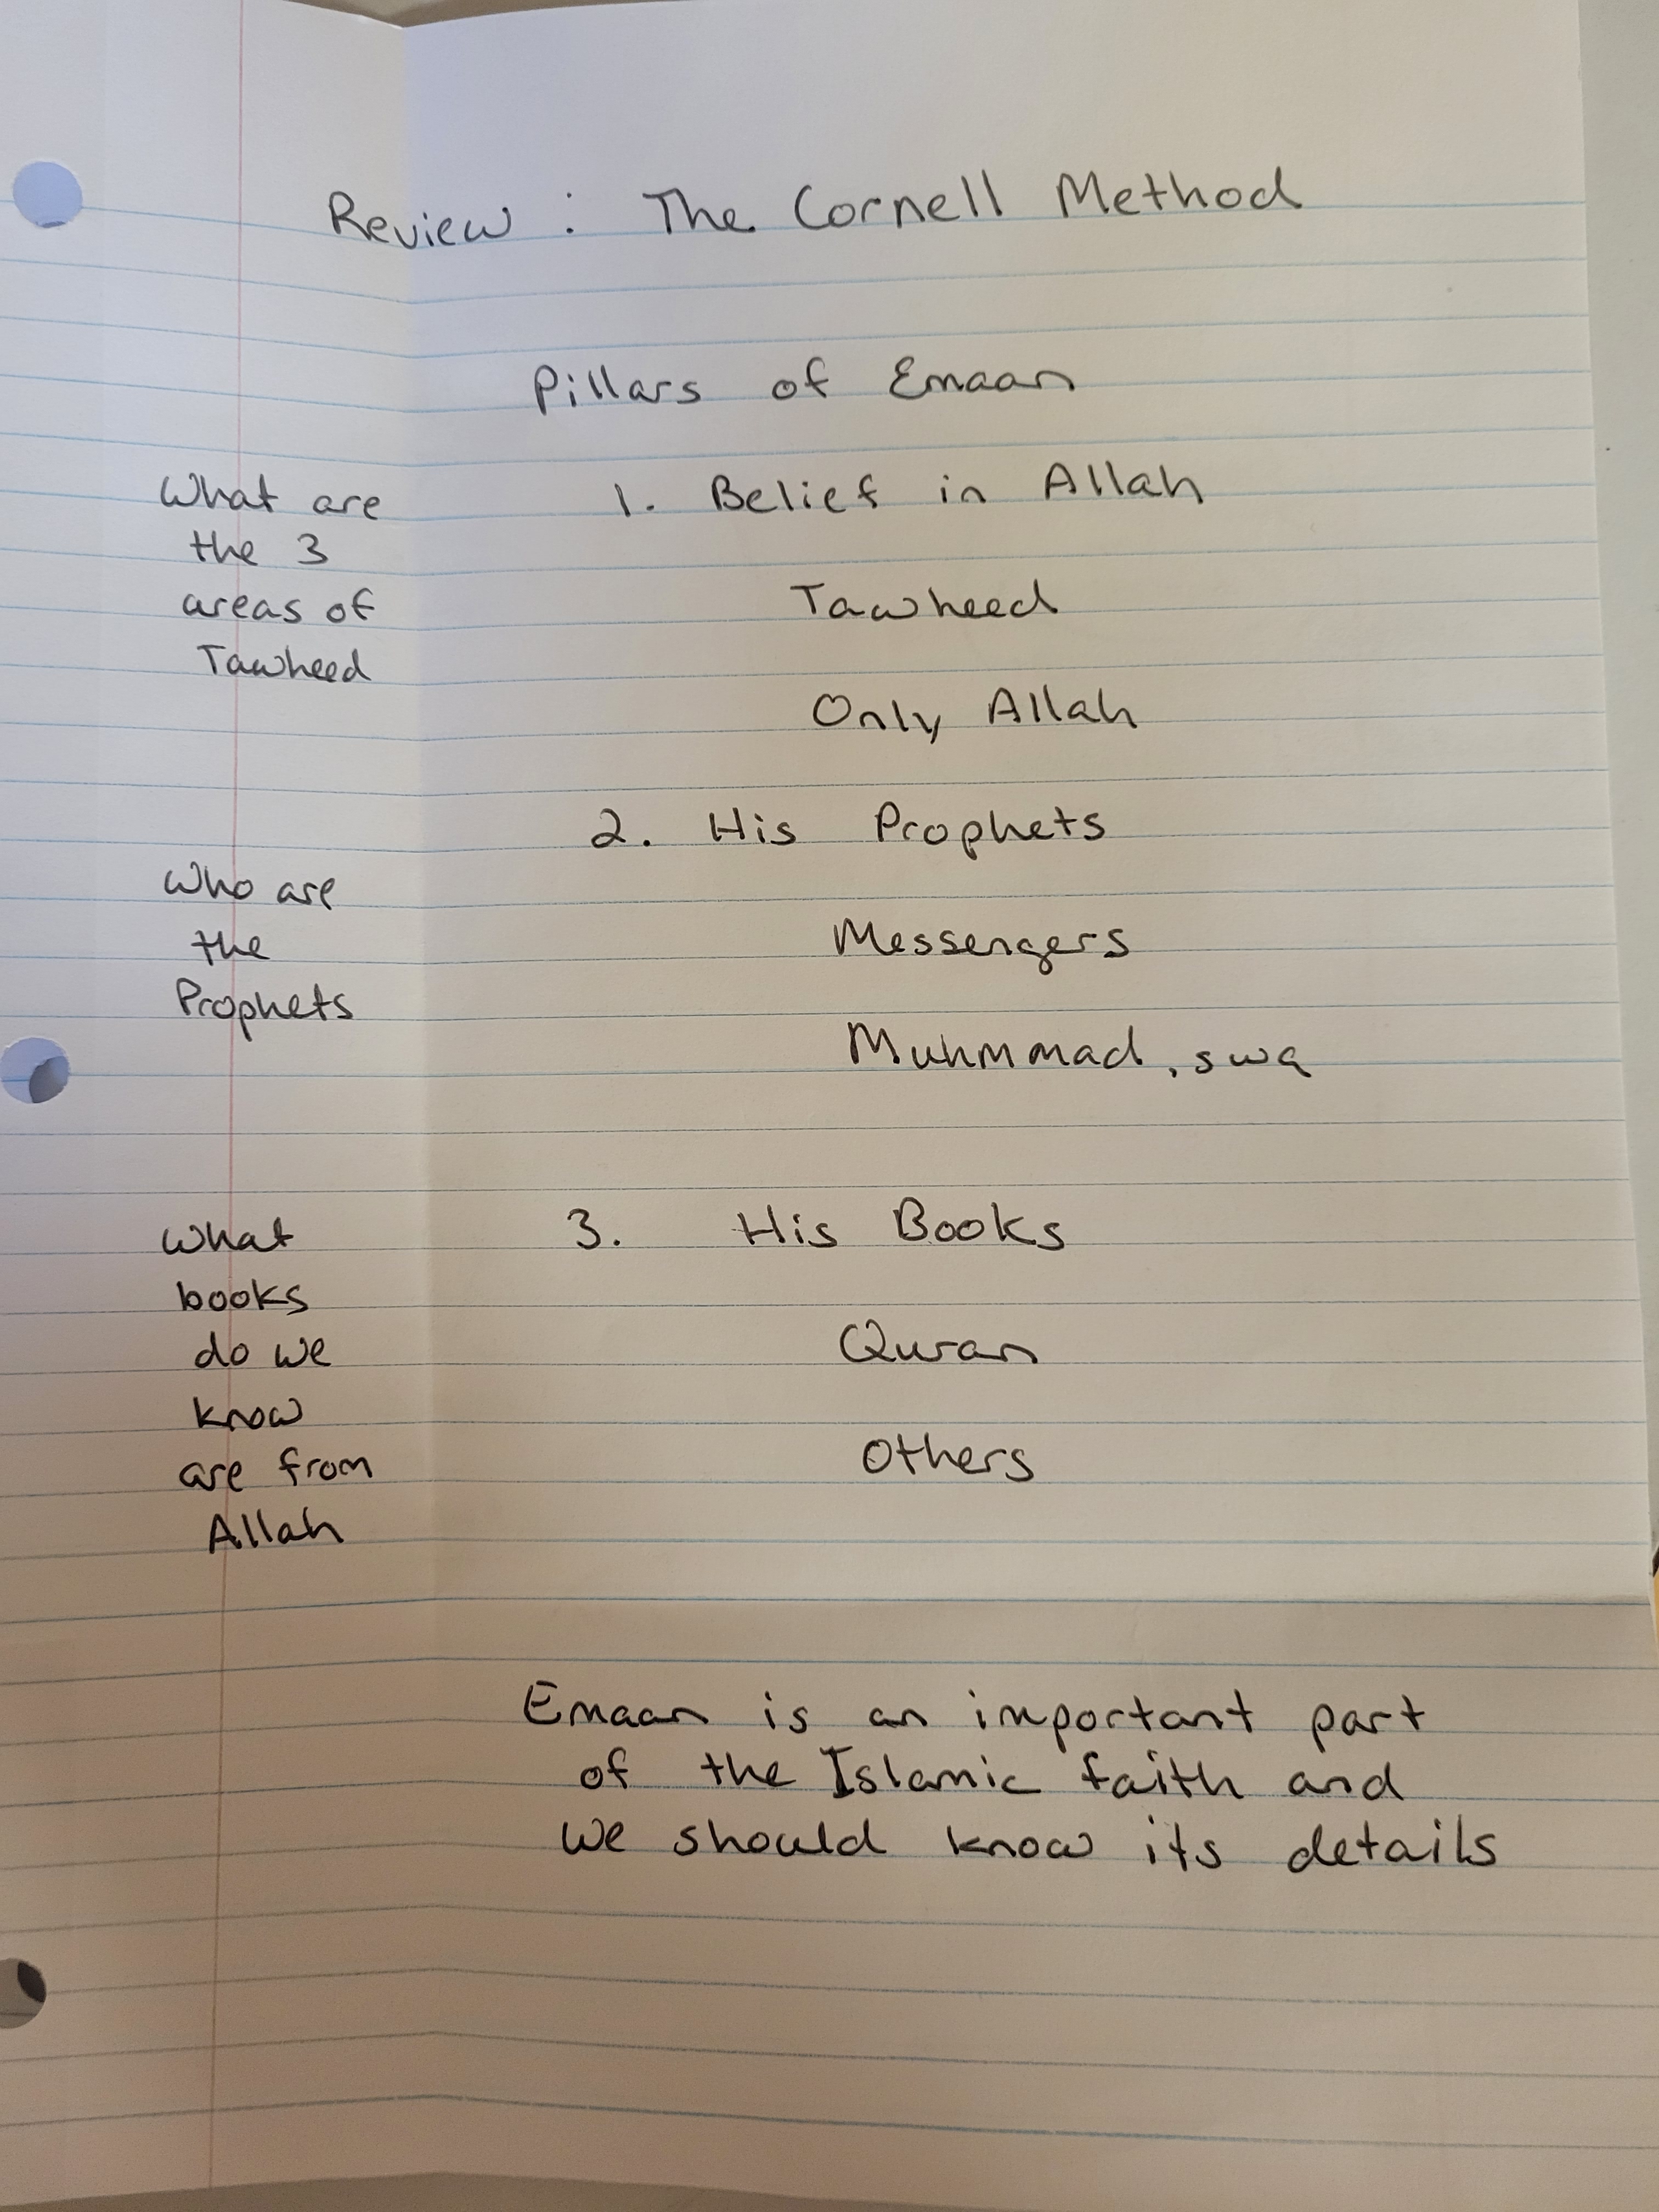 Review : The Cornell Method
Pillars of Emaan
What are
the 3
areas of
Tawheed
1. Belief in Allah
Tawheed
Only Allah
Who are
the
Prophets
2. His Prophets
Messengers
Muhmmad, swa
What
books
do we
know
are from
Allah
3. His Books
Quran
Others
Emaan is an important part
of the Islamic faith and
we should know its details